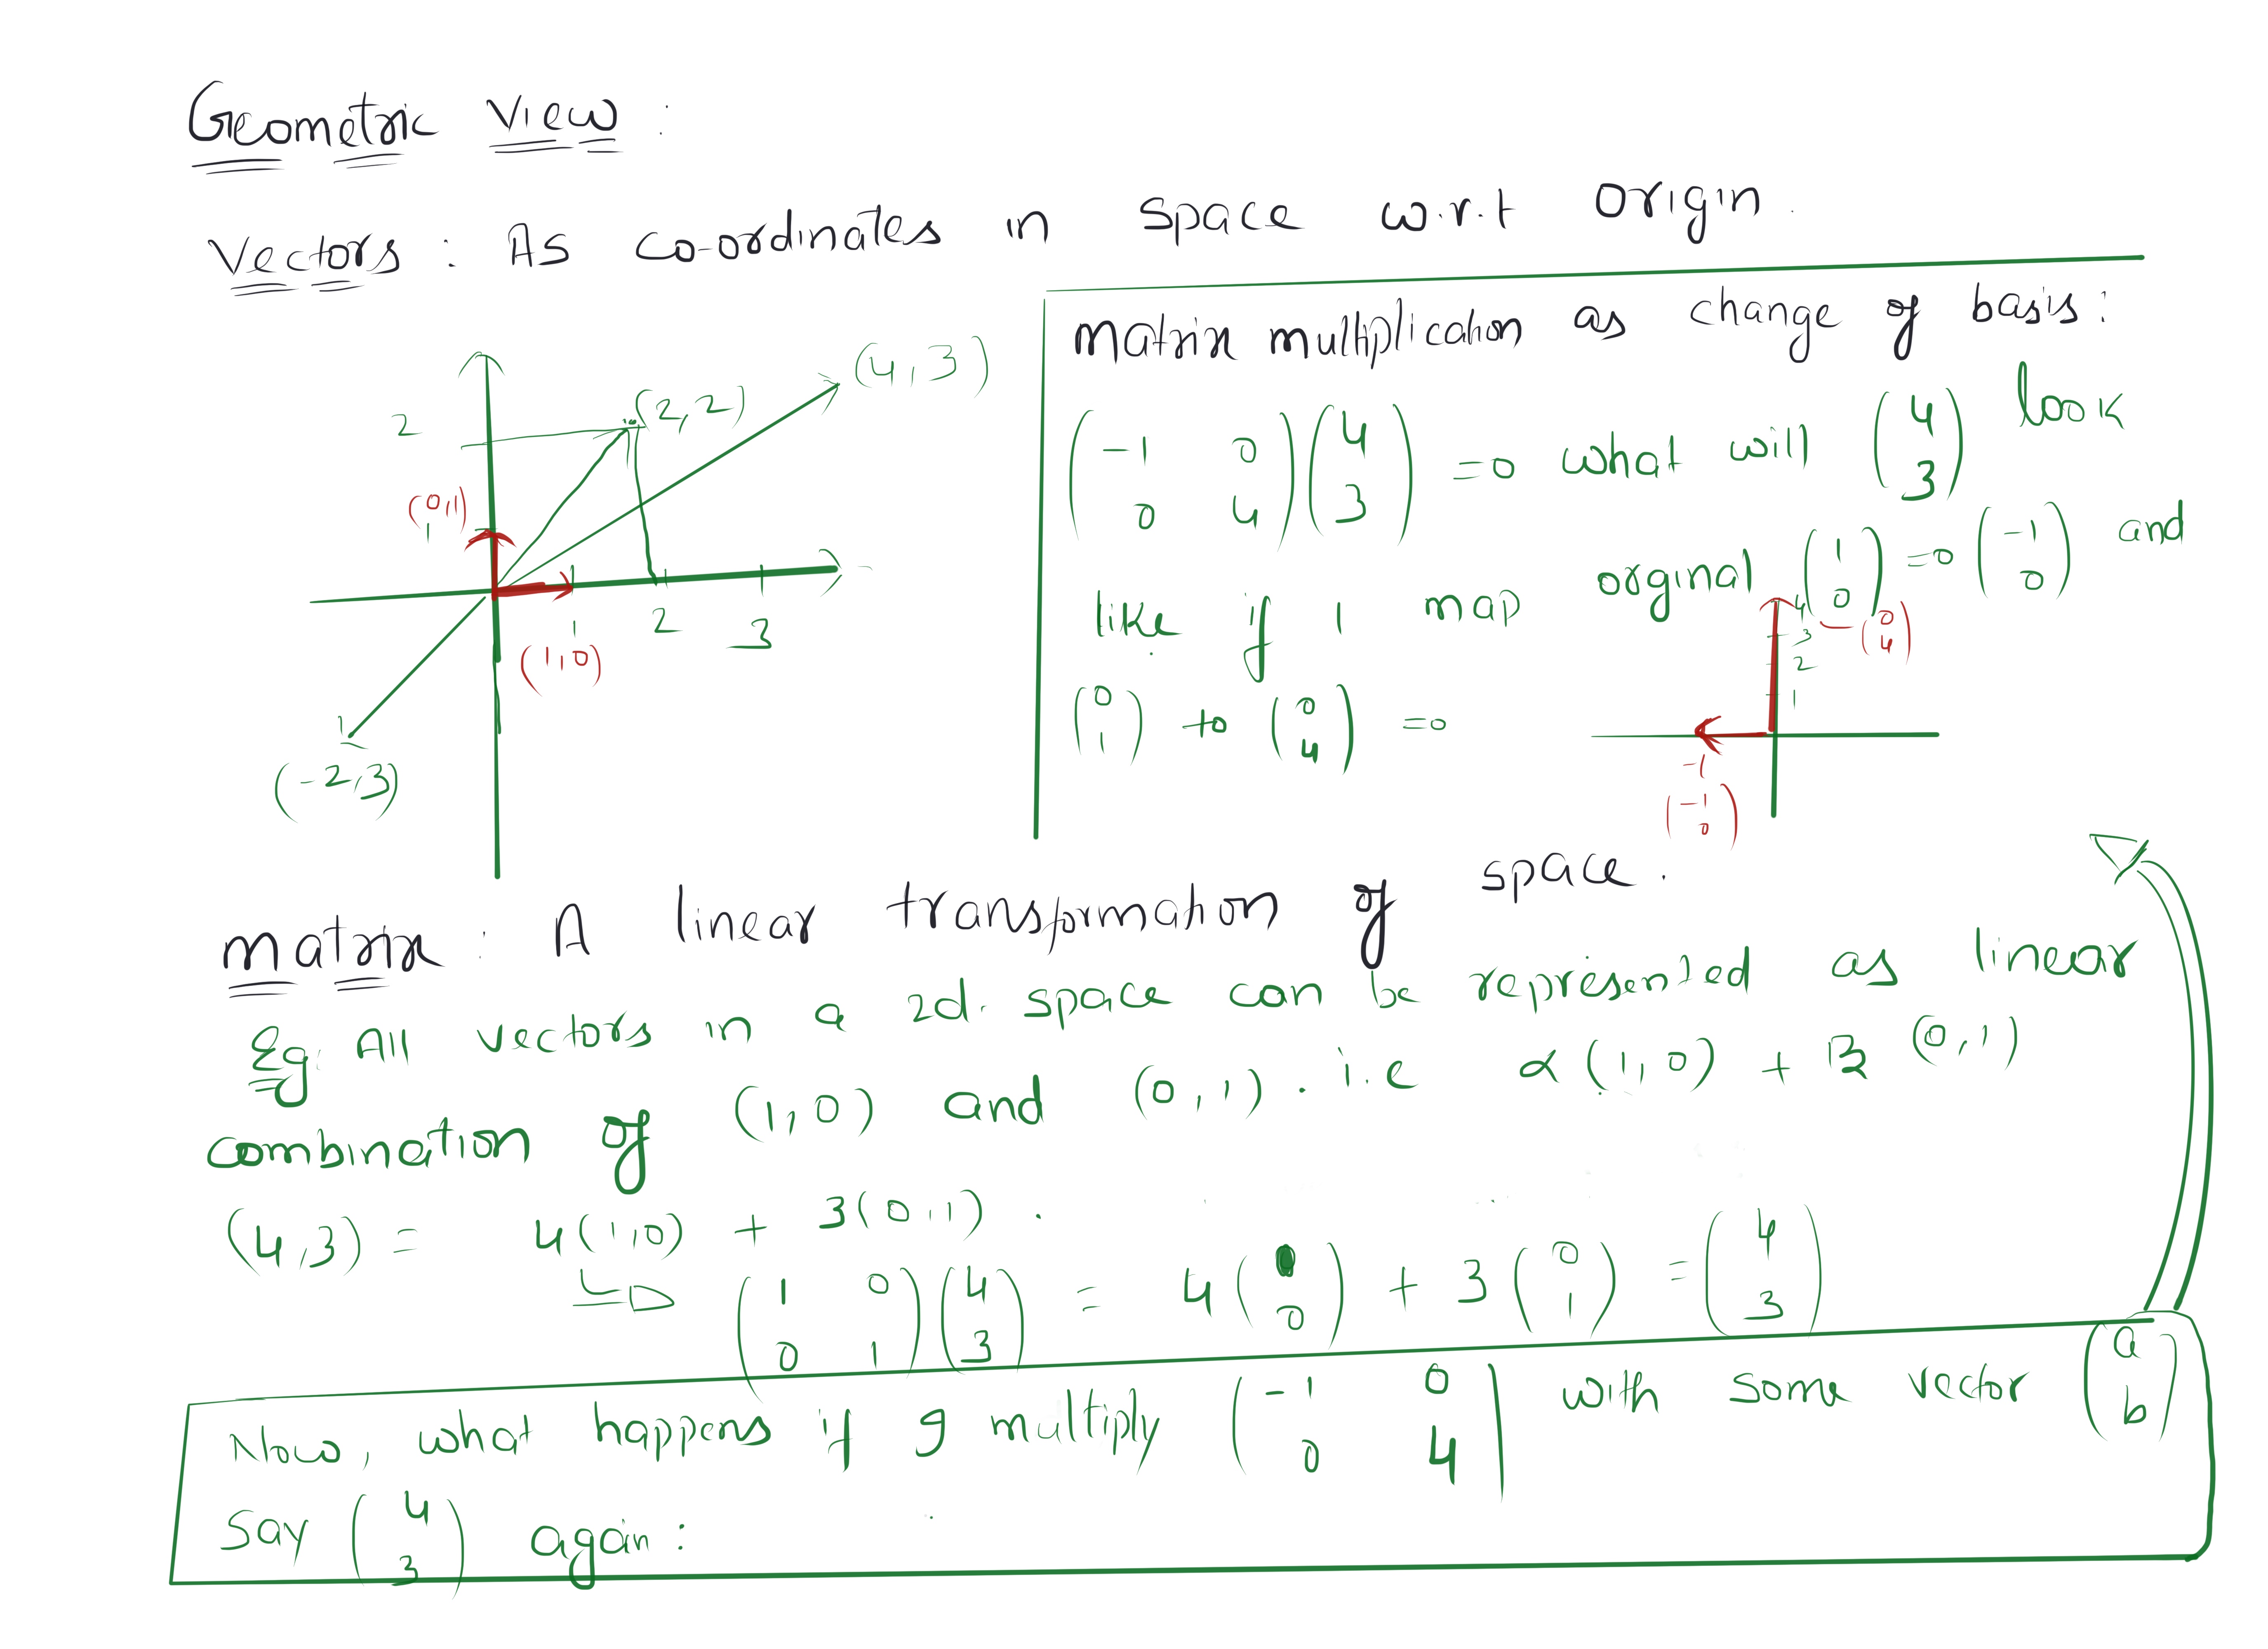 Geometric view :
Vectors : As co-ordinates in space w.r.t origin.
(4,3)
(2,2)
2
(0,1)
1
1 2 3
(1,0)
(-2,3)
Matrix multiplication as change of basis :
(-1 0 (4
0 4) 3) => what will (4 3) look
like if I map orginal (1 0) => (-1 0) and
(0 1) to (0 4) =>
4 (0 4)
3
2
1
-1
(-1 0)
Matrix : A linear transformation of space.
Eg. All vectors in a 2d. space can be represented as linear
combination of (1,0) and (0,1). i.e α(1,0) + β(0,1)
(4,3) = 4(1,0) + 3(0,1).
(1 0 (4
0 1) 3) = 4( 0) + 3(0 1) = (4 3)
Now, what happens if I multiply (-1 0
0 4) with some vector (a b)
Say (4 3) again :